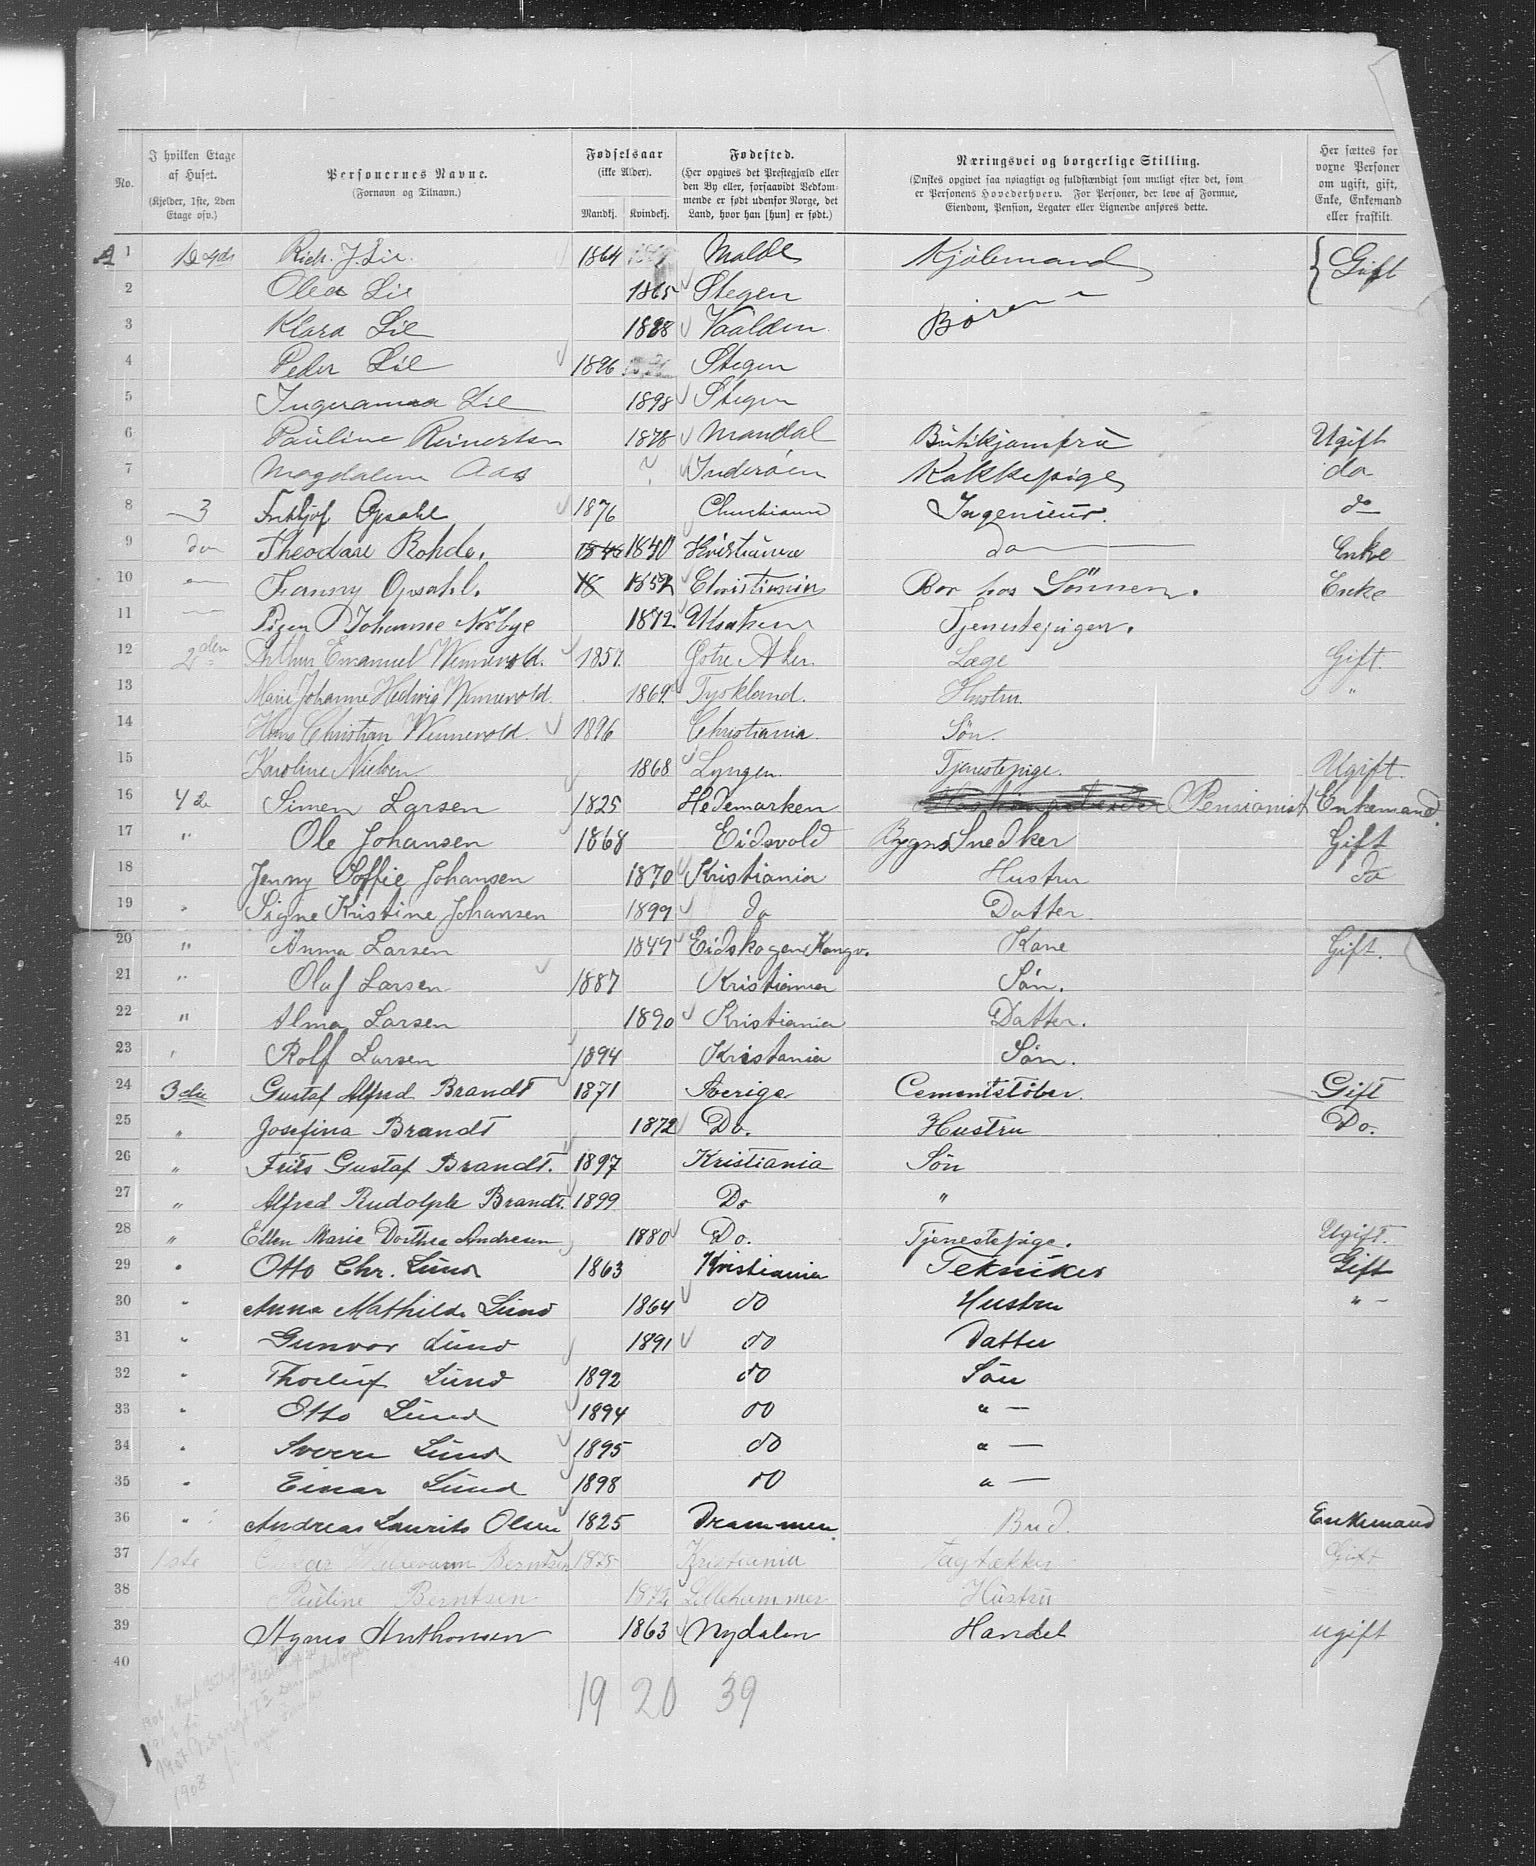 No.
I hvilken Etage af Huset. (Kjelder, 1ste, 2den Etage osv.)
Personernes Navne. (Fornavn og Tilnavn.)
Fødselsaar (ikke Alder). Mandkj. Kvindekj.
Fødested. (Her opgives det Prestegjæld eller den By eller, forsaavidt Vedkommende er født udenfor Norge, det Land, hvor han [hun] er født.)
Næringsvei og borgerlige Stilling. (Ønskes opgivet saa nøiagtigt og fuldstændigt som muligt efter det, som er Personens Hovederhverv. For Personer, der leve af Formue, Eiendom, Pension, Legater eller Lignende anføres dette.)
Her sættes for voxne Personer om ugift, gift, Enke, Enkemand eller fraskilt.
A 1 Rich. J. Lie. 1864 Molde Kjøbmand Gift
2 Olea Lie 1865 Stegen
3 Klara Lie 1888 Børn
4 Peder Lie 1896 Stegen
5 Lie 1898 Stegen
6 Pauline Reinertsen 1878 Mandal Butikjomfru Ugift
7 Magdalene Aas ? Inderøen Kokkepige do
8 3 Frithjof Opsahl 1876 Christiania Ingenieur. do
9 do Theodore Rohde. 1840 Kristiania do Enke
10 Fanny Opsahl. 1852 Christiania Bor hos Sønnen. Enke
11 Pigen Johanne Norbye 1872. Tjenestepigen.
12 2den Arthur Emanuel Wennevold. 1857. Østre Aker. Læge Gift.
13 Marie Johanne Hedwig Wennevold. 1869. Tyskland. Hustru. "
14 Hans Christian Wennevold. 1896 Christiania. Søn.
15 Karoline Nielsen 1868 Lyngen. Tjenestepige. Ugift.
16 4de Simen Larsen 1825 Hedemarken Pensionist Enkemand.
17 " Ole Johansen 1868 Eidsvold Bygns Snedker Gift
18 Jenny Soffie Johansen 1870 Kristiania Hustru Do
19 " Signe Kristine Johansen 1899 do Datter.
20 " Anna Larsen 1849 Eidskogen Kongv. Kone Gift.
21 " Olaf Larsen 1887 Kristiania Søn.
22 " Alma Larsen 1890 Kristiania Datter.
23 " Rolf Larsen 1894 Kristania Søn.
24 3die Gustaf Alfred Brandt 1871 Sverige Cementstøber. Gift
25 " Josefina Brandt 1872 Do. Hustru Do.
26 " Frits Gustaf Brandt. 1897 Kristiania Søn
27 " Alfred Rudolph Brandt. 1899 Do "
28 " Ellen Marie Dorthea Andresen 1880 Do. Tjenestepige. Ugift.
29 " Otto Chr. Lund 1863 Kristiania Tekniker Gift
30 " Anna Mathilde Lund 1864 do Hustru " —
31 " Gunvor Lund 1891 do Datter
32 " Thorleif Lund 1892 do Søn
33 " Otto Lund 1894 do " —
34 " Sverre Lund 1895 do " —
35 " Einar Lund 1898 do " —
36 " Andreas Laurits Olsen 1825 Drammen Bud. Enkemand
37 1ste Berntsen 1875 Kristiania Tagtækker Gift
38 Pauline Berntsen 1872 Lillehammer Hustru "
39 Agnes Anthonsen 1863 Nydalen Handel ugift
40
19 20 39
1908